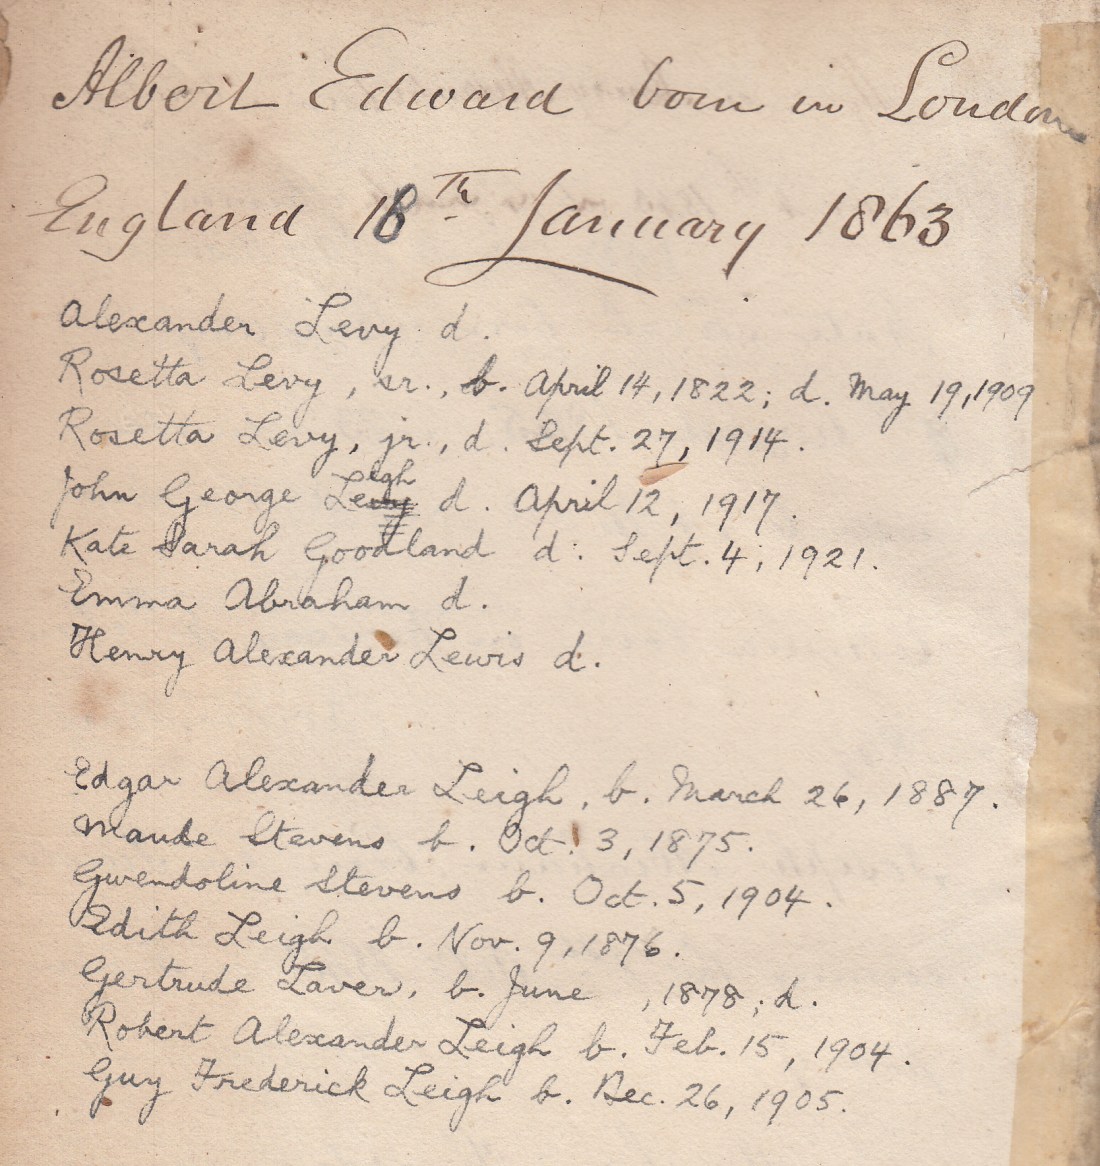 Albert Edward born in London
England 18th January 1863
Alexander Levy d.
Rosetta Levy, sr., b. April 14, 1822; d. May 19, 1909
Rosetta Levy, jr., d. Sept. 27, 1914.
John George Leigh d. April 12, 1917.
Kate Sarah Goodland d. Sept. 4, 1921.
Emma Abraham d.
Henry Alexander Lewis d.
Edgar Alexander Leigh, b. March 26, 1887.
Maude Stevens b. Oct. 3, 1875.
Gwendoline Stevens b. Oct. 5, 1904.
Edith Leigh b. Nov. 9, 1876.
Gertrude Laver, b. June , 1878; d.
Robert Alexander Leigh b. Feb. 15, 1904.
Guy Frederick Leigh b. Dec. 26, 1905.